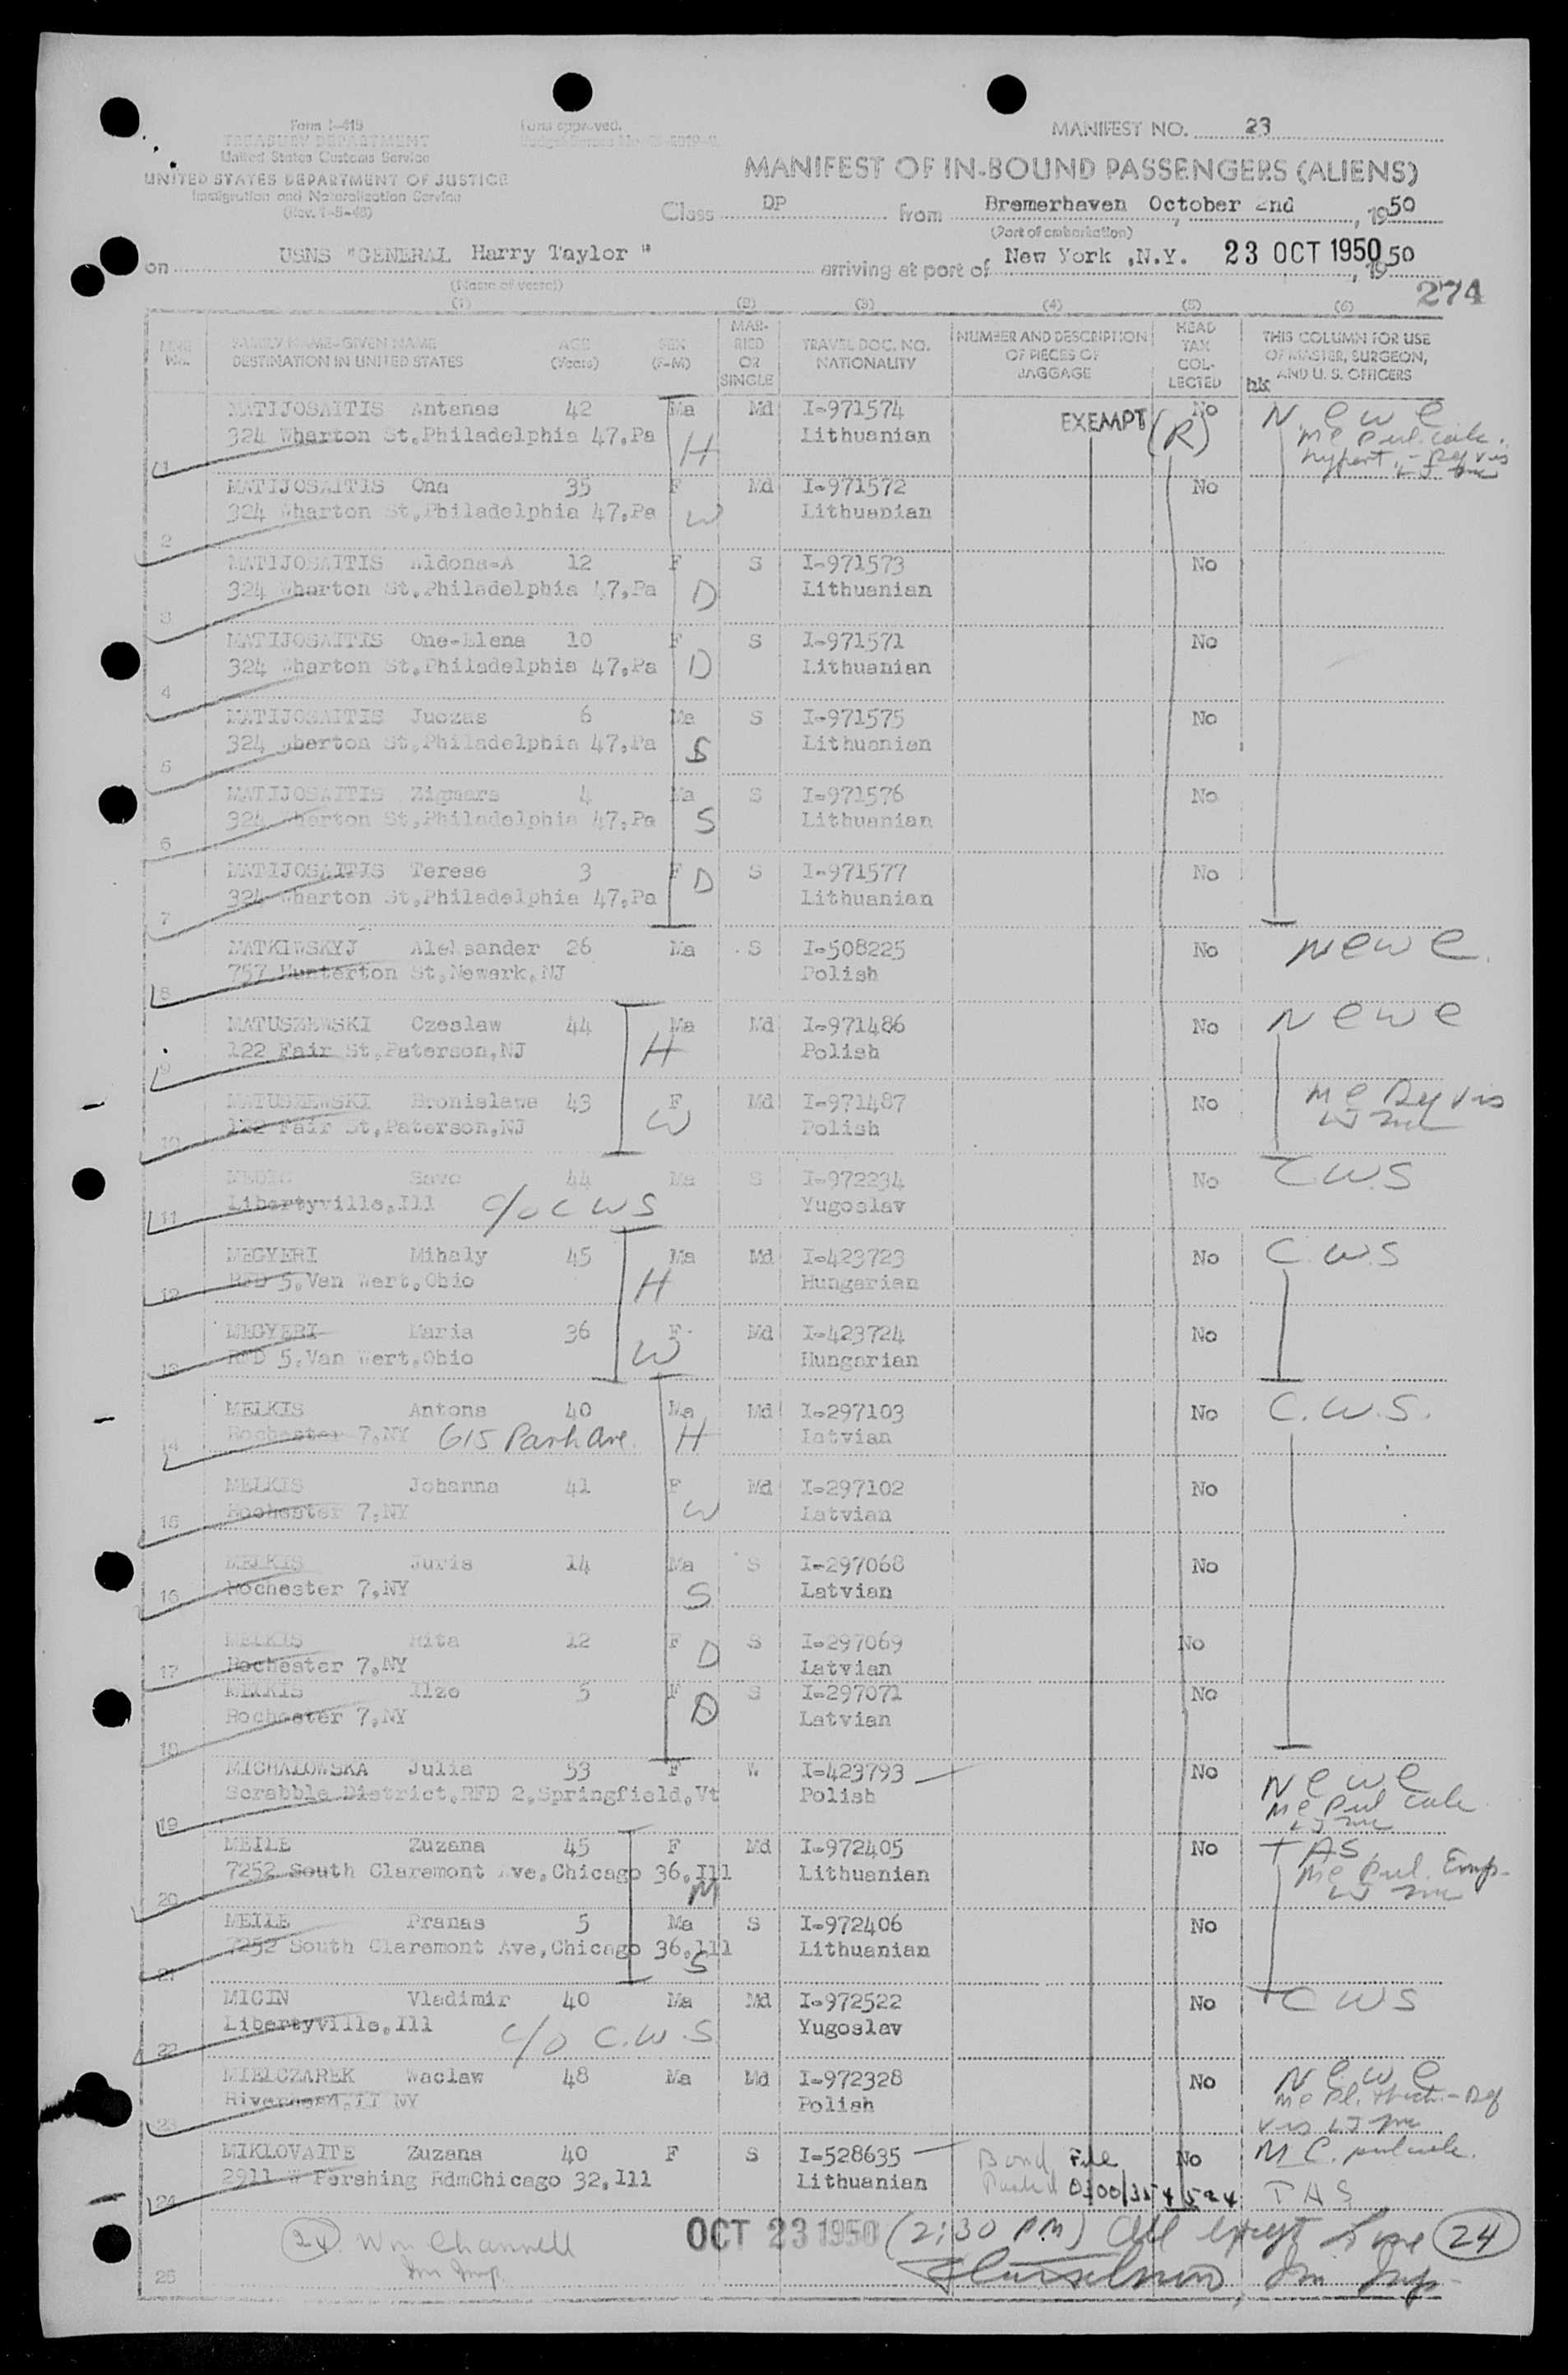 Form I-415
TREASURY DEPARTMENT
United States Customs Service
UNITED STATES DEPARTMENT OF JUSTICE
Immigration and Naturalization Service
Form approved.
MANIFEST NO. 23
MANIFEST OF IN-BOUND PASSENGERS (ALIENS)
Class DP from Bremerhaven October 2nd, 1950
(Port of embarkation)
on USNS "GENERAL Harry Taylor" arriving at port of New York, N.Y. 23 OCT 1950, 1950
(Name of vessel)
274
(1) (2) (3) (4) (5) (6)
LINE No. FAMILY NAME-GIVEN NAME DESTINATION IN UNITED STATES AGE (Years) SEX (F-M) MARRIED OR SINGLE TRAVEL DOC. NO. NATIONALITY NUMBER AND DESCRIPTION OF PIECES OF BAGGAGE HEAD TAX COLLECTED THIS COLUMN FOR USE OF MASTER, SURGEON, AND U. S. OFFICERS
hk
MATIJOSAITIS Antanas 42 Ma Md I-971574 EXEMPT (R) No N.C.W.C
1 324 Wharton St,Philadelphia 47,Pa H Lithuanian
MATIJOSAITIS Ona 35 F Md I-971572 No
2 324 Wharton St,Philadelphia 47,Pa W Lithuanian
MATIJOSAITIS Aldona-A 12 F S I-971573 No
3 324 Wharton St,Philadelphia 47,Pa D Lithuanian
MATIJOSAITIS One-Elena 10 F S I-971571 No
4 324 Wharton St,Philadelphia 47,Pa D Lithuanian
MATIJOSAITIS Juozas 6 Ma S I-971575 No
5 324 Wharton St,Philadelphia 47,Pa S Lithuanian
MATIJOSAITIS Zigmars 4 Ma S I-971576 No
6 324 Wharton St,Philadelphia 47,Pa S Lithuanian
MATIJOSAITIS Terese 3 F D S I-971577 No
7 324 Wharton St,Philadelphia 47,Pa Lithuanian
MATKIWSKYJ Aleksander 26 Ma S I-508225 No NCWC
8 757 Hunterton St,Newark,NJ Polish
MATUSZEWSKI Czeslaw 44 Ma Md I-971486 No NCWC
9 122 Fair St,Paterson,NJ H Polish
MATUSZEWSKI Bronislawa 43 F Md I-971487 No
10 122 Fair St,Paterson,NJ W Polish
Savo 44 Ma S I-972234 No C.W.S
11 Libertyville,Ill c/o CWS Yugoslav
MEGYERI Mihaly 45 Ma Md I-423723 No C.W.S
12 RFD 5,Van Wert,Ohio H Hungarian
MEGYERI Maria 36 F Md I-423724 No
13 RFD 5,Van Wert,Ohio W Hungarian
MELKIS Antons 40 Ma Md I-297103 No C.W.S.
14 Rochester 7,NY 615 Park Ave. H Latvian
MELKIS Johanna 41 F Md I-297102 No
15 Rochester 7,NY W Latvian
MELKIS Juris 14 Ma S I-297068 No
16 Rochester 7,NY S Latvian
MELKIS Rita 12 F D S I-297069 No
17 Rochester 7,NY Latvian
MELKIS Ilze 5 F D S I-297071 No
18 Rochester 7,NY Latvian
MICHALOWSKA Julia 53 F W I-423793 No NCWC
19 Scrabble District,RFD 2,Springfield,Vt Polish
MEILE Zuzana 45 F Md I-972405 No TAS
20 7252 South Claremont Ave,Chicago 36,Ill M Lithuanian
MEILE Pranas 5 Ma S I-972406 No
21 7252 South Claremont Ave,Chicago 36,Ill S Lithuanian
MICIN Vladimir 40 Ma Md I-972522 No CWS
22 Libertyville,Ill c/o C.W.S. Yugoslav
MIELCZAREK Waclaw 48 Ma Md I-972328 No NCWC
23 Riverhead,LI NY Polish
MIKLOVAITE Zuzana 40 F S I-528635 Bond File No M C.
24 2911 W Pershing RdmChicago 32,Ill Lithuanian Posted TAS
25 (24) Wm Channell OCT 23 1950 (2:30 PM) All except Line (24)
Im Insp. Im Insp.